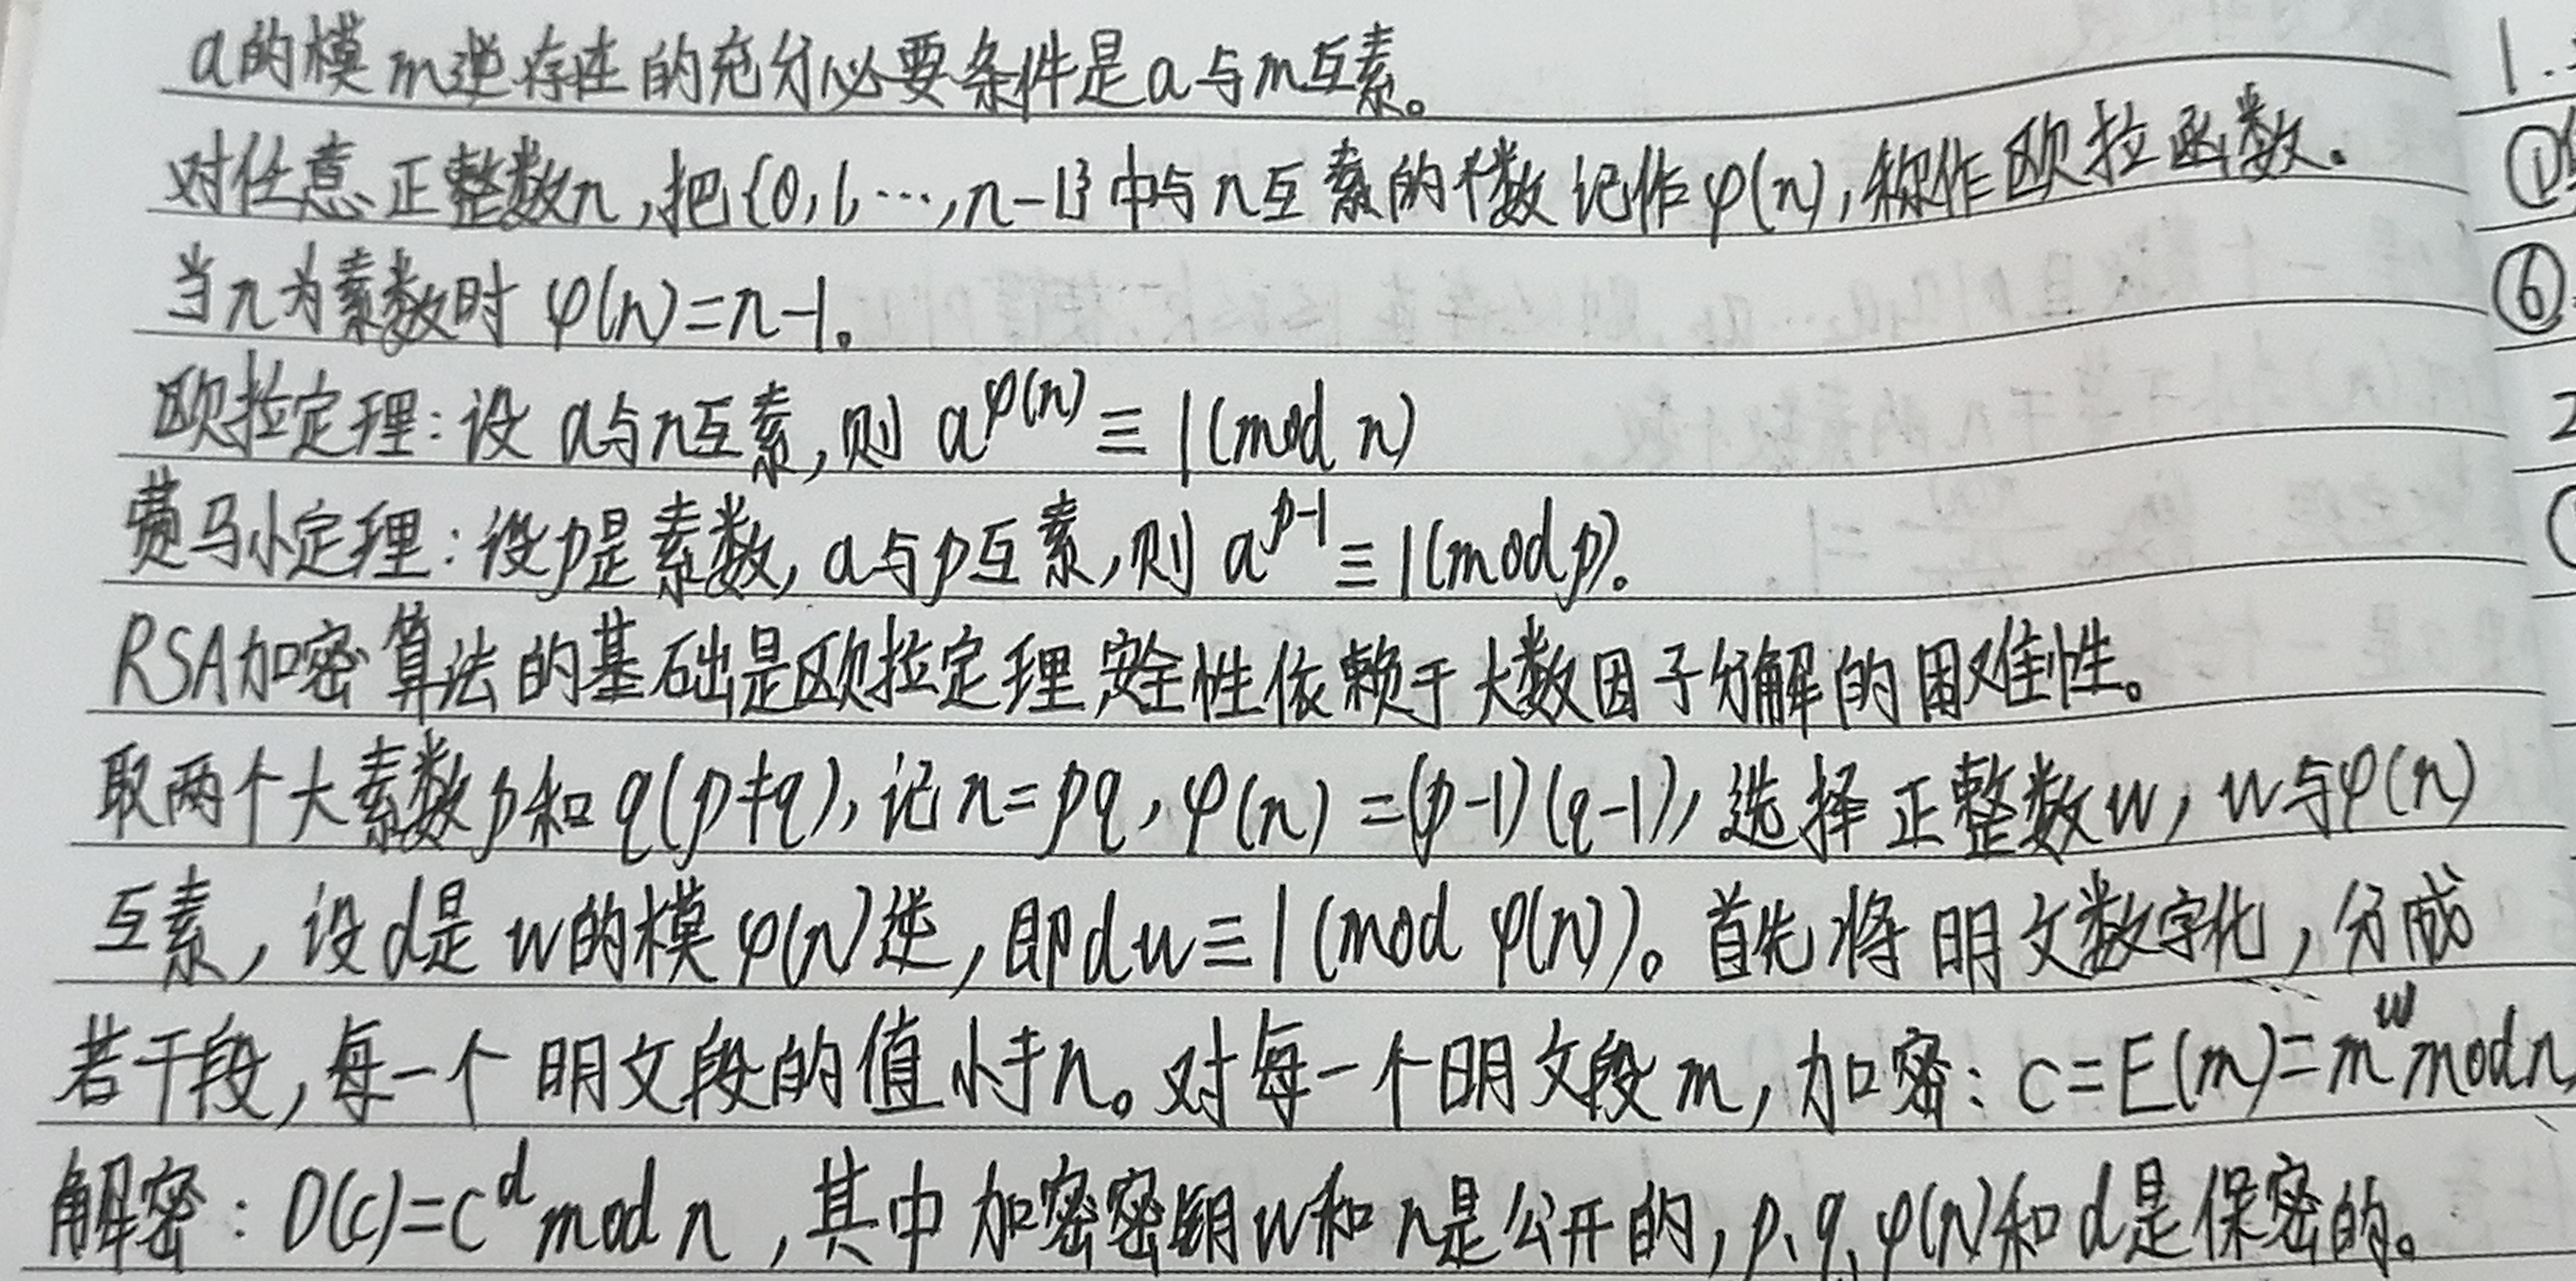 a的模m逆存在的充分必要条件是a与m互素。
对任意正整数n,把{0,1,…,n-1}中与n互素的个数记作φ(n),称作欧拉函数.
当n为素数时 φ(n)=n-1。
欧拉定理:设 a与n互素,则 a^φ(n) ≡ 1(mod n)
费马小定理:设p是素数, a与p互素,则 a^p-1 ≡ 1(mod p).
RSA加密算法的基础是欧拉定理 安全性依赖于大数因子分解的困难性。
取两个大素数p和q(p≠q),记n=pq,φ(n)=(p-1)(q-1),选择正整数w,w与φ(n)
互素,设d是w的模φ(n)逆,即dw≡1(mod φ(n))。首先将明文数字化,分成
若干段,每一个明文段的值小于n。对每一个明文段m,加密:c=E(m)=m^w mod n,
解密:D(c)=c^d mod n,其中加密密钥w和n是公开的,p、q、φ(n)和d是保密的。
1.
①
⑥
2